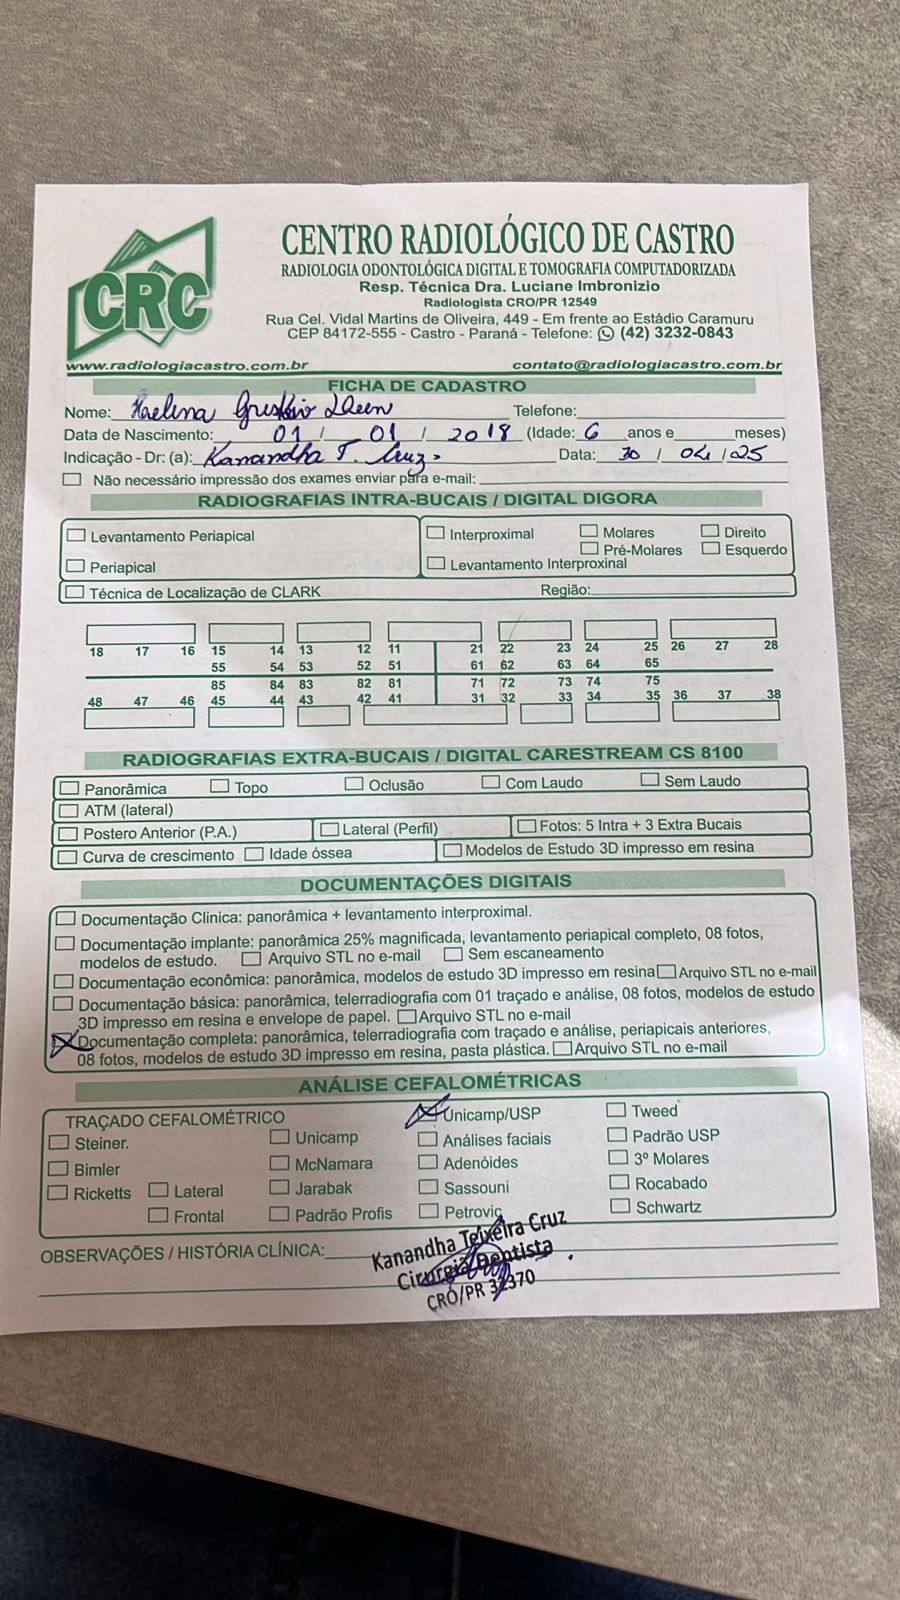 CRC
CENTRO RADIOLÓGICO DE CASTRO
RADIOLOGIA ODONTOLÓGICA DIGITAL E TOMOGRAFIA COMPUTADORIZADA
Resp. Técnica Dra. Luciane Imbronizio
Radiologista CRO/PR 12549
Rua Cel. Vidal Martins de Oliveira, 449 - Em frente ao Estádio Caramuru
CEP 84172-555 - Castro - Paraná - Telefone: (42) 3232-0843
www.radiologiacastro.com.br contato@radiologiacastro.com.br
FICHA DE CADASTRO
Nome: Telefone:
Data de Nascimento: 01 / 01 / 2018 (Idade: 6 anos e meses)
Indicação - Dr: (a): Kanandha T. Cruz. Data: 30 / 04 / 25
Não necessário impressão dos exames enviar para e-mail:
RADIOGRAFIAS INTRA-BUCAIS / DIGITAL DIGORA
Levantamento Periapical Interproximal Molares Direito
Pré-Molares Esquerdo
Periapical Levantamento Interproximal
Técnica de Localização de CLARK Região:
18 17 16 15 14 13 12 11 21 22 23 24 25 26 27 28
55 54 53 52 51 61 62 63 64 65
85 84 83 82 81 71 72 73 74 75
48 47 46 45 44 43 42 41 31 32 33 34 35 36 37 38
RADIOGRAFIAS EXTRA-BUCAIS / DIGITAL CARESTREAM CS 8100
Panorâmica Topo Oclusão Com Laudo Sem Laudo
ATM (lateral)
Postero Anterior (P.A.) Lateral (Perfil) Fotos: 5 Intra + 3 Extra Bucais
Curva de crescimento Idade óssea Modelos de Estudo 3D impresso em resina
DOCUMENTAÇÕES DIGITAIS
Documentação Clinica: panorâmica + levantamento interproximal.
Documentação implante: panorâmica 25% magnificada, levantamento periapical completo, 08 fotos,
modelos de estudo. Arquivo STL no e-mail Sem escaneamento
Documentação econômica: panorâmica, modelos de estudo 3D impresso em resina Arquivo STL no e-mail
Documentação básica: panorâmica, telerradiografia com 01 traçado e análise, 08 fotos, modelos de estudo
3D impresso em resina e envelope de papel. Arquivo STL no e-mail
Documentação completa: panorâmica, telerradiografia com traçado e análise, periapicais anteriores,
08 fotos, modelos de estudo 3D impresso em resina, pasta plástica. Arquivo STL no e-mail
ANÁLISE CEFALOMÉTRICAS
TRAÇADO CEFALOMÉTRICO Unicamp/USP Tweed
Steiner. Unicamp Análises faciais Padrão USP
Bimler McNamara Adenóides 3º Molares
Ricketts Lateral Jarabak Sassouni Rocabado
Frontal Padrão Profis Petrovic Schwartz
OBSERVAÇÕES / HISTÓRIA CLÍNICA:
Kanandha Teixeira Cruz
Cirurgiã Dentista
CRO/PR 32370